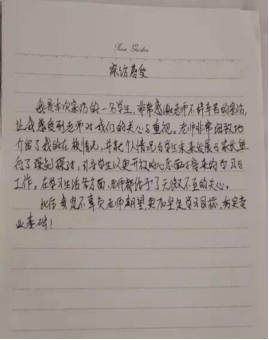 Rose Garden
家访感受
我是本次家访的一名学生，非常感谢老师不辞辛苦的家访，
让我感受到老师对我们的关心与重视。老师非常细致地
介绍了我的在校情况，并就个人情况与学生未来发展与家长进
行了深刻探讨，引导学生以更开放的心态面对将来的学习与
工作。在学习生活等方面，老师都给予了无微不至的关心。
此后我定不辜负老师期望，更加坚定学习目标，夯实专
业基础！